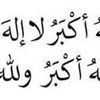 أَكْبَرُ لا إِلهَ
أَكْبَرُ ولله